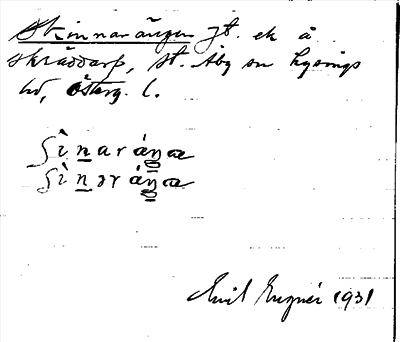 Skinnarängen jt. ek å
Skräddarp, St. Åby sn Lysings
hd, Österg. l.
ʃì n a r áŋæ
ʃì n ər áŋæ
Emil 1931